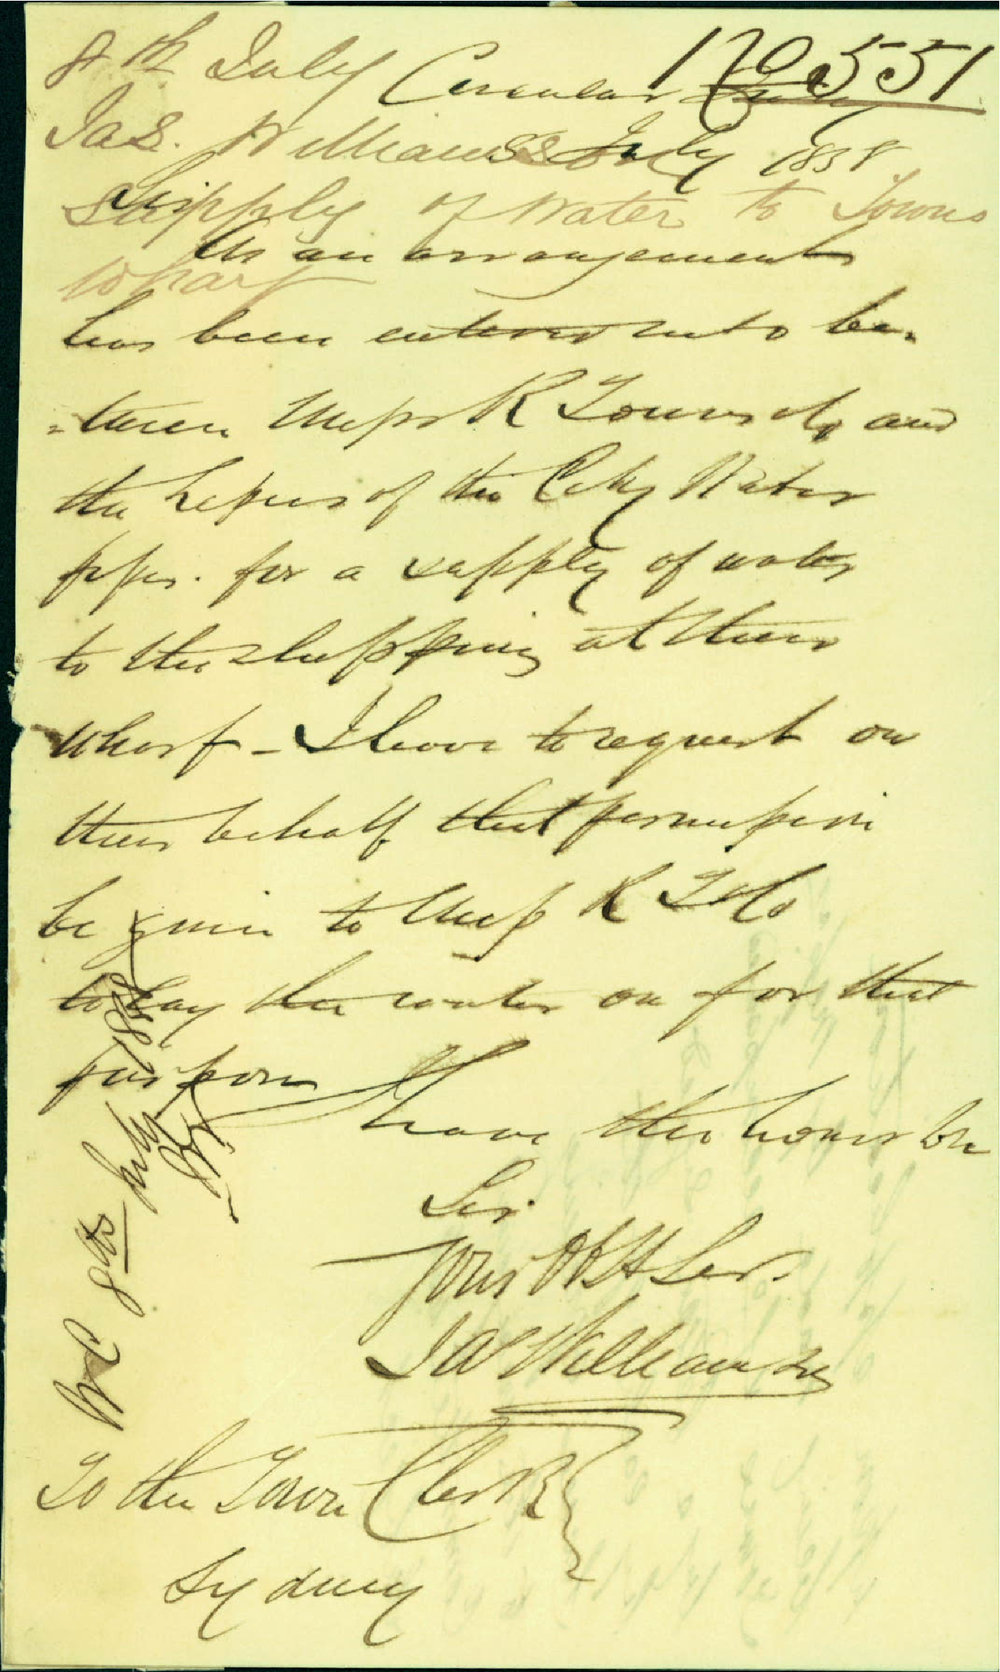 No 551
8th July Circular Quay
Jas. Williamson July 1858
Supply of Water to Towns
wharf
Sir
As an arrangement
has been entered into be-
=tween Messrs R Towns & Co and
the Lessees of the City Water
pipes. for a supply of water
to the shipping at their
wharf - I have to request on
their behalf that permission
be given to Mess R T & Co
to lay the water on for that
purpose I
have the honor be
Sir
Your Obt Ser.
Jas Williamson
To the Town Clerk
Sydney
WC 8th July 1858